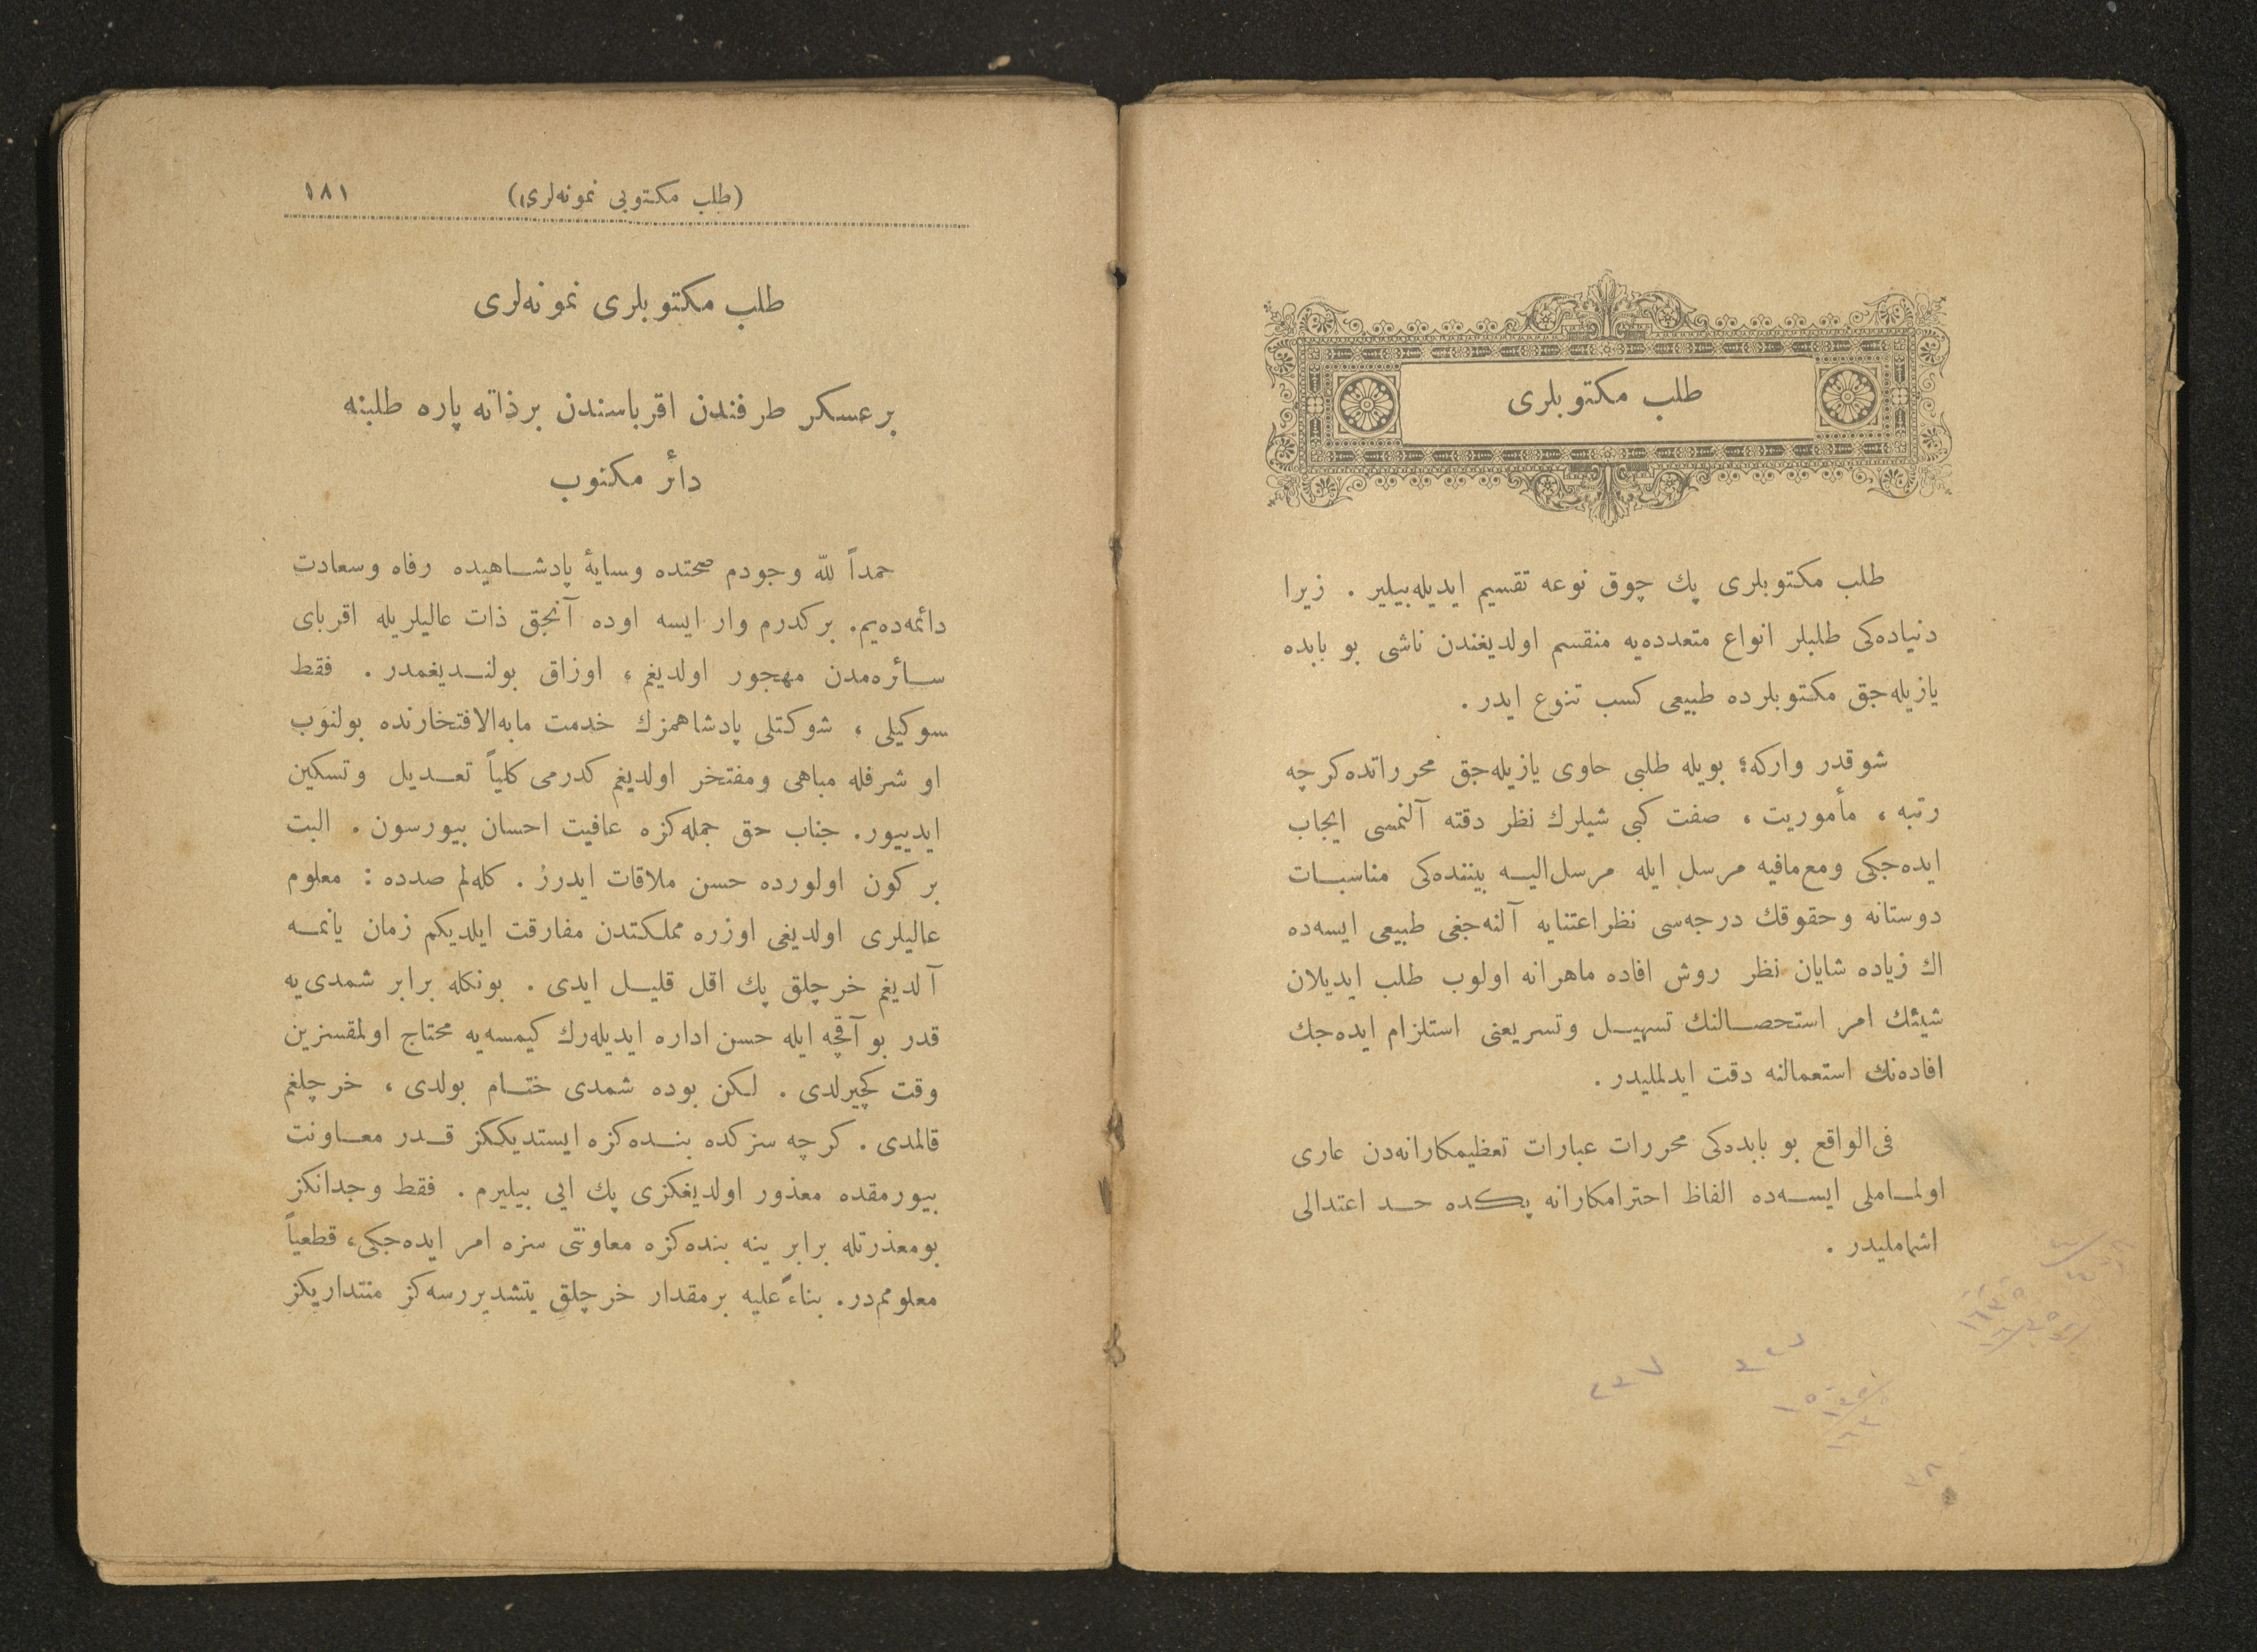 طلب مكتوبلری
طلب مكتوبلری پك چوق نوعه تقسیم ایدیله‌بیلیر . زیرا
دنیاده‌كی طلبلر انواع متعدده‌یه منقسم اولدیغندن ناشی بو بابده
یازیله‌جق مكتوبلرده طبیعی كسب تنوع ایدر .
شو قدر واركه؛ بویله طلبی حاوی یازیله‌جق محرراتده كرچه
رتبه ، مأموریت ، صفت كبی شیلرك نظر دقته آلنمسی ایجاب
ایده‌جكی ومع‌مافیه مرسل ایله مرسل‌الیه بیننده‌كی مناسبات
دوستانه وحقوقك درجه‌سی نظر اعتنایه آلنه‌جغی طبیعی ایسه‌ده
اك زیاده شایان نظر روش افاده ماهرانه اولوب طلب ایدیلان
شیئك امر استحصالنك تسهیل وتسریعنی استلزام ایده‌جك
افاده‌نك استعمالنه دقت ایدلملیدر .
فی‌الواقع بو بابده‌كی محررات عبارات تعظیمكارانه‌دن عاری
اولماملی ایسه‌ده الفاظ احترامكارانه پكده حد اعتدالی
اشماملیدر .
(طلب مكتوبی نمونه‌لری) ۱۸۱
طلب مكتوبلری نمونه‌لری
بر عسكر طرفندن اقرباسندن برذاته پاره طلبنه
دأئر مكتوب
حمداً للّه وجودم صحتده وسایهٔ پادشاهیده رفاه وسعادت
دائمه‌ده‌یم. بر كدرم وار ایسه اوده آنجق ذات عالیلریله اقربای
سائره‌مدن مهجور اولدیغم ، اوزاق بولندیغمدر . فقط
سوكیلی ، شوكتلی پادشاهمزك خدمت مابه‌الافتخارنده بولنوب
او شرفله مباهی ومفتخر اولدیغم كدرمی كلیاً تعدیل وتسكین
ایدییور. جناب حق جمله‌كزه عافیت احسان بیورسون . البت
بر كون اولورده حسن ملاقات ایدرز . كله‌لم صدده : معلوم
عالیلری اولدیغی اوزره مملكتدن مفارقت ایلدیكم زمان یانمه
آلدیغم خرچلق پك اقل قلیل ایدی . بونكله برابر شمدی‌یه
قدر بو آقچه ایله حسن اداره ایدیله‌رك كیمسه‌یه محتاج اولمقسزین
وقت كچیرلدی . لكن بوده شمدی ختام بولدی ، خرچلغم
قالمدی . كرچه سزكده بنده‌كزه ایستدیككز قدر معاونت
بیورمقده معذور اولدیغكزی پك ایی بیلیرم . فقط وجدانكز
بومعذرتله برابر ینه بنده‌كزه معاونتی سزه امر ایده‌جكی، قطعیاً
معلوممدر. بناءً علیه برمقدار خرچلق یتشدیررسه‌كز منتداریكز